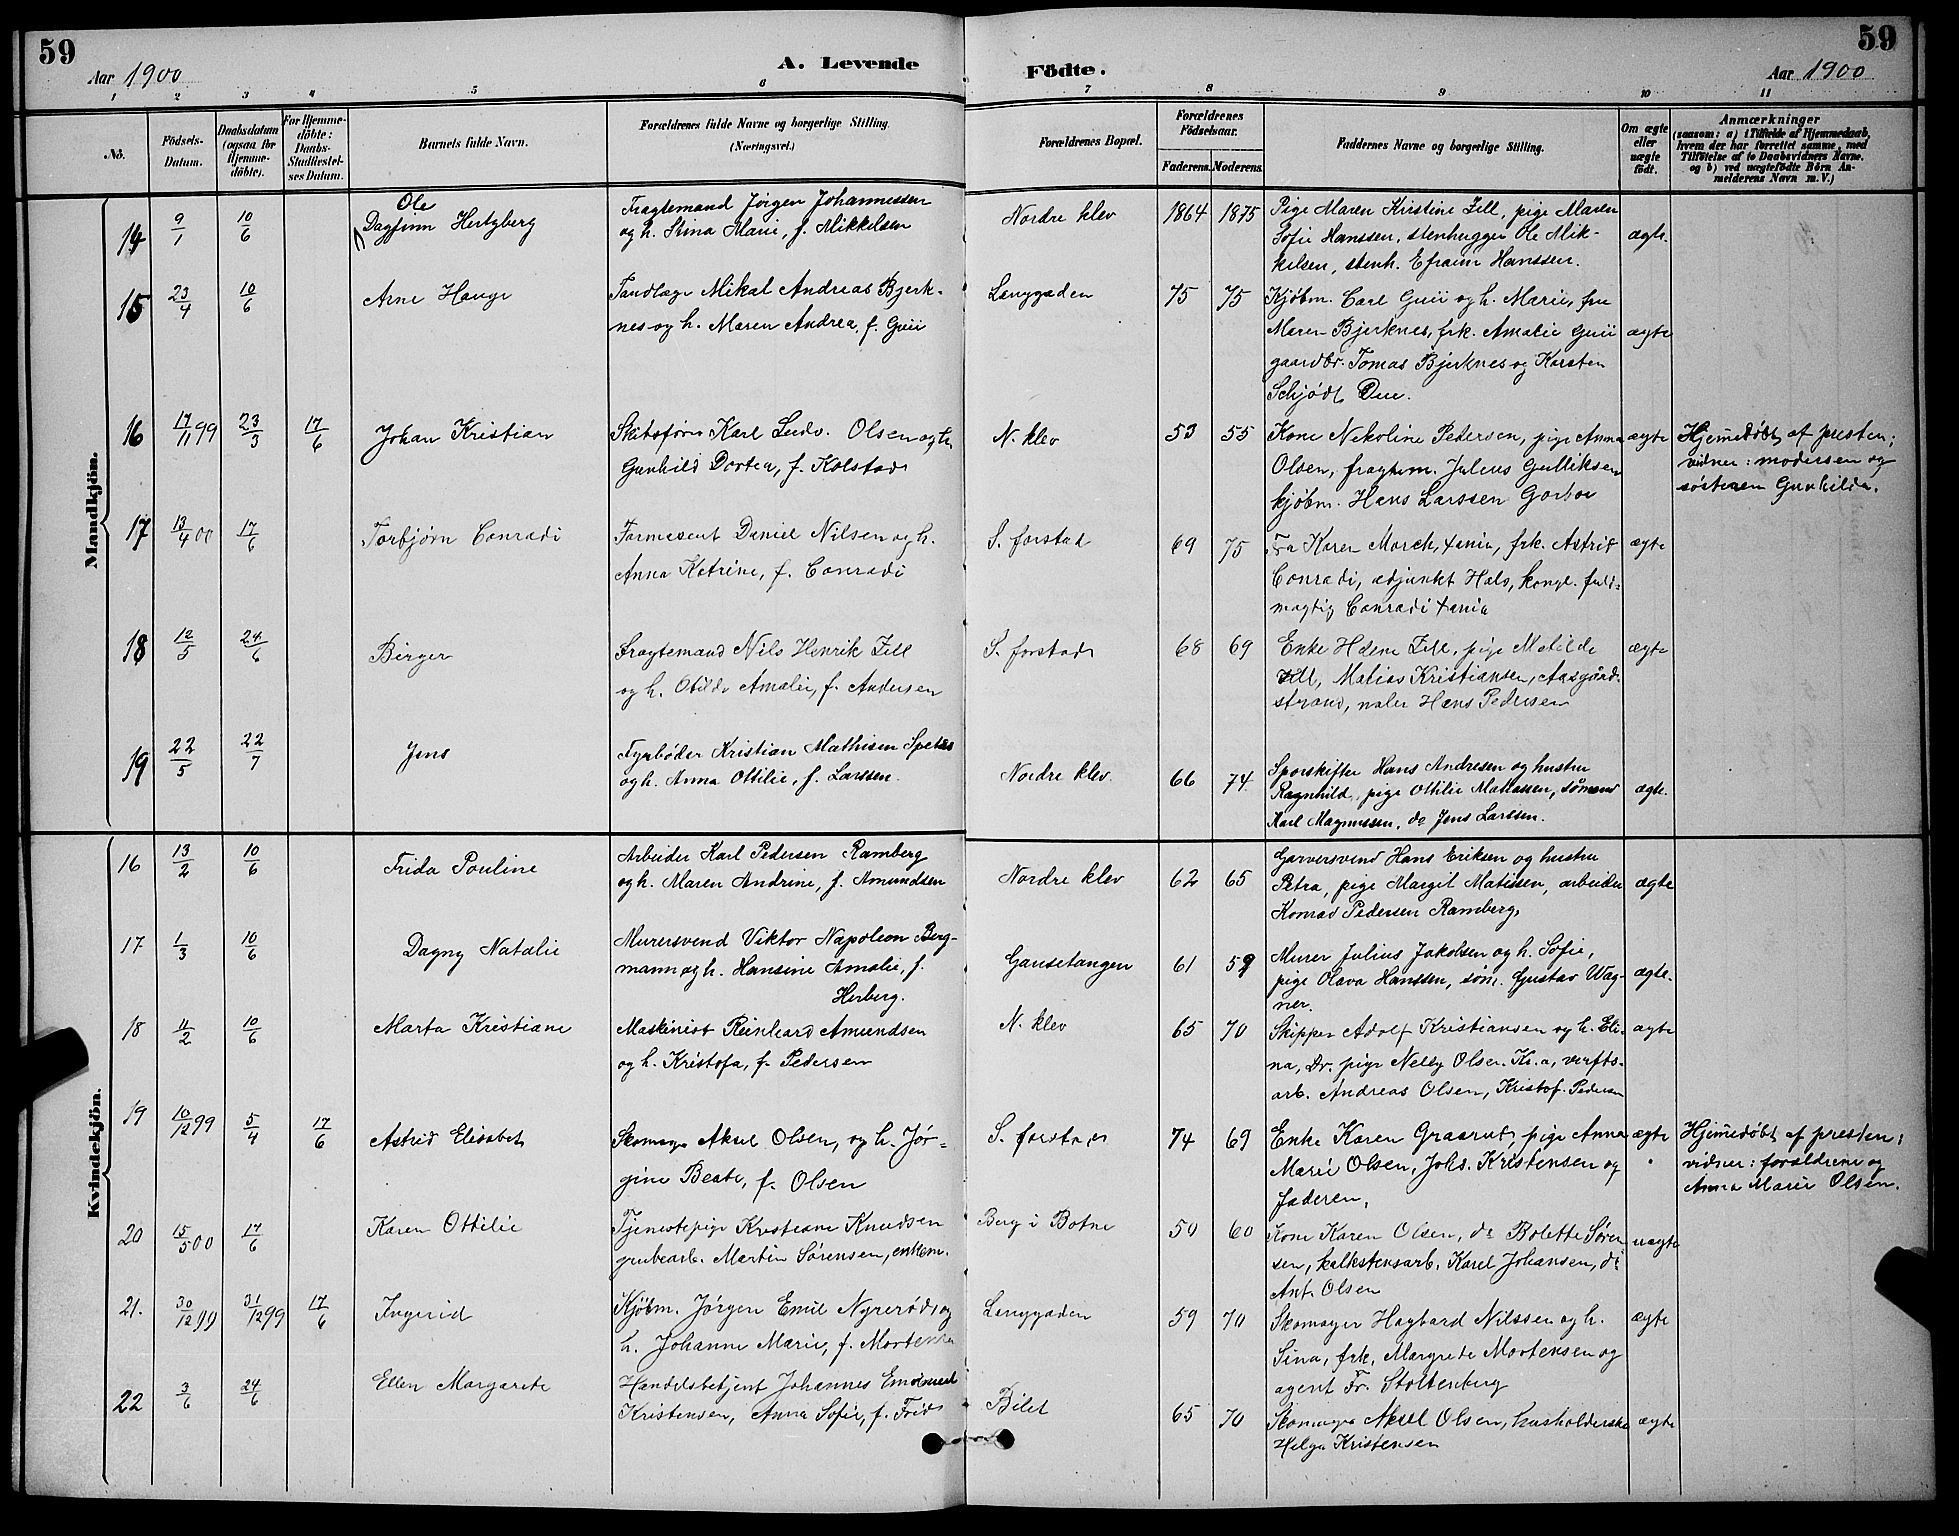 59
Aar 1900
A. Levende
Födte.
Aar 1900
59
1 2 3 4 5 6 7 8 9 10 11
No.
Födsels-
Datum.
Daabsdatum
(ogsaa for
Hjemme-
döbte).
For Hjemme-
döbte:
Daabs-
Stadfæstel-
ses Datum.
Barnets fulde Navn.
Forældrenes fulde Navne og borgerlige Stilling.
(Næringsvei.)
Forældrenes Bopæl.
Forældrenes
Födselsaar.
Faderens.
Moderens.
Faddernes Navne og borgerlige Stilling.
Om ægte
eller
uægte
født.
Anmærkninger
(saasom: a) i Tilfælde af Hjemmedaab,
hvem der har forrettet samme, med
Tilföielse af to Daabsvidners Navne.
og b) ved uægtefödte Börn An-
melderens Navn m. V.)
Mandkjön.
14 9/1 10/6 Ole
Dagfinn Hertzberg
Fragtemand Jörgen Johannessen
og h. Stina Marie, f. Mikkelsen
Nordre klev 1864 1875
Pige Maren Kristine Zill, pige Maren
Sofie Hanssen, stenhugger Ole Mik-
kelsen, stenh. Efraim Hanssen.
ægte.
15 23/4 10/6 Arne Hauge
Tandlæge Mikal Andreas Bjerk-
nes og h. Maren Andrea, f. Guii
Langgaden 75 75
Kjøbm. Carl Guii og h. Marie, fru
Maren Bjerknes, frk. Amalie Guii
gaardbr. Tomas Bjerknes og Karsten
Schjödt Due.
ægte
16 17/11 99 23/3 17/6 Johan Kristian
Skibsförer Karl Ludv. Olsen og h.
Gunhild Dortea, f. Kolstad
N. klev 53 55
Kone Nekoline Pedersen, pige Anna
Olsen, fragtem. Julius Gulliksen
kjøbm. Hans Larssen Gorboe
ægte
Hjemmedöbt af presten;
vidner: moderen og
søsteren Gunhilda.
17 13/4 00 17/6 Torbjörn Conradi
Farmaceut Daniel Nilsen og h.
Anna Katrine, f. Conradi
S. forstad 69 75
Fru Karen Morch, Xania, frk. Astrid
Conradi, adjunkt Hals, kongl. fuld-
mægtig Conradi Xania
ægte
18 12/5 24/6 Birger
Fragtemand Nils Henrik Zill
og h. Otilde Amalie, f. Andersen
S. forstad 68 69
Enke Helene Zill, pige Matilde
Zill, Matias Kristiansen, Aasgård-
strand, maler Hans Pedersen
ægte
19 22/5 22/7 Jens
Fyrböder Kristian Mathisen Spetås
og h. Anna Ottilie, f. Larssen.
Nordre klev. 66 74.
Sporskifter Hans Andresen og hustru
Ragnhild, pige Ottilie Matiassen, sömand
Karl Magnussen, do Jens Larssen.
ægte.
Kvindekjön.
16 13/2 10/6 Frida Pauline
Arbeider Karl Pedersen Ramberg
og h. Maren Andrine, f. Amundsen
Nordre klev 62 65
Garversvend Hans Eriksen og hustru
Petra, pige Margit Matissen, arbeider
Konrad Pedersen Ramberg.
ægte
17 1/3 10/6 Dagny Natalie
Murersvend Viktor Napoleon Berg-
mann og h. Hansine Amalie, f.
Herberg.
Gausetangen 61 59
Murer Julius Jakobsen og h. Sofie,
pige Olava Hanssen, søm. Gustav Wag-
ner.
ægte.
18 11/2 10/6 Marta Kristiane
Maskinist Reinhard Amundsen
og h. Kristofa, f. Pedersen
N. klev 65 70
Skipper Adolf Kristiansen og h. Eli-
na, Dr. pige Nelly Olsen Kr.a, verfts-
arb. Andreas Olsen, Kristof. Pedersen
ægte
19 10/12 99 5/4 17/6 Astrid Elisabet
Skomager Aksel Olsen, og h. Jör-
gine Beate, f. Olsen
S. forstad 74 69
Enke Karen Graarud, pige Anna
Marie Olsen, Johs. Kristensen og
faderen,
ægte
Hjemmedöbt af presten;
vidner: forældrene og
Anna Marie Olsen.
20 15/5 00 17/6 Karen Ottilie
Tjenestepige Kristiane Knudsen
grubearb. Martin Sörensen, enkem.
Berg i Botne 50 60
Kone Karen Olsen, do Bolette Sören-
sen, kalkstensarb. Karel Johansen, do
Ant. Olsen
uægte
21. 30/12 99 31/12 99 17/6 Ingerid
Kjöbm. Jörgen Emil Nyreröd og
h. Johanne Marie, f. Mortensen
Langgaden 59 70
Skomager Hagbard Nilssen og h.
Sina, frk. Margrete Mortensen og
agent Fr. Stoltenberg
ægte
22 3/6 24/6 Ellen Margarete
Handelsbetjent Johannes Emanuel
Kristensen, Anna Sofie, f. Friis
Bilet 65 70
Skomager Aksel Olsen, husholderske
Helga Kristensen
ægte